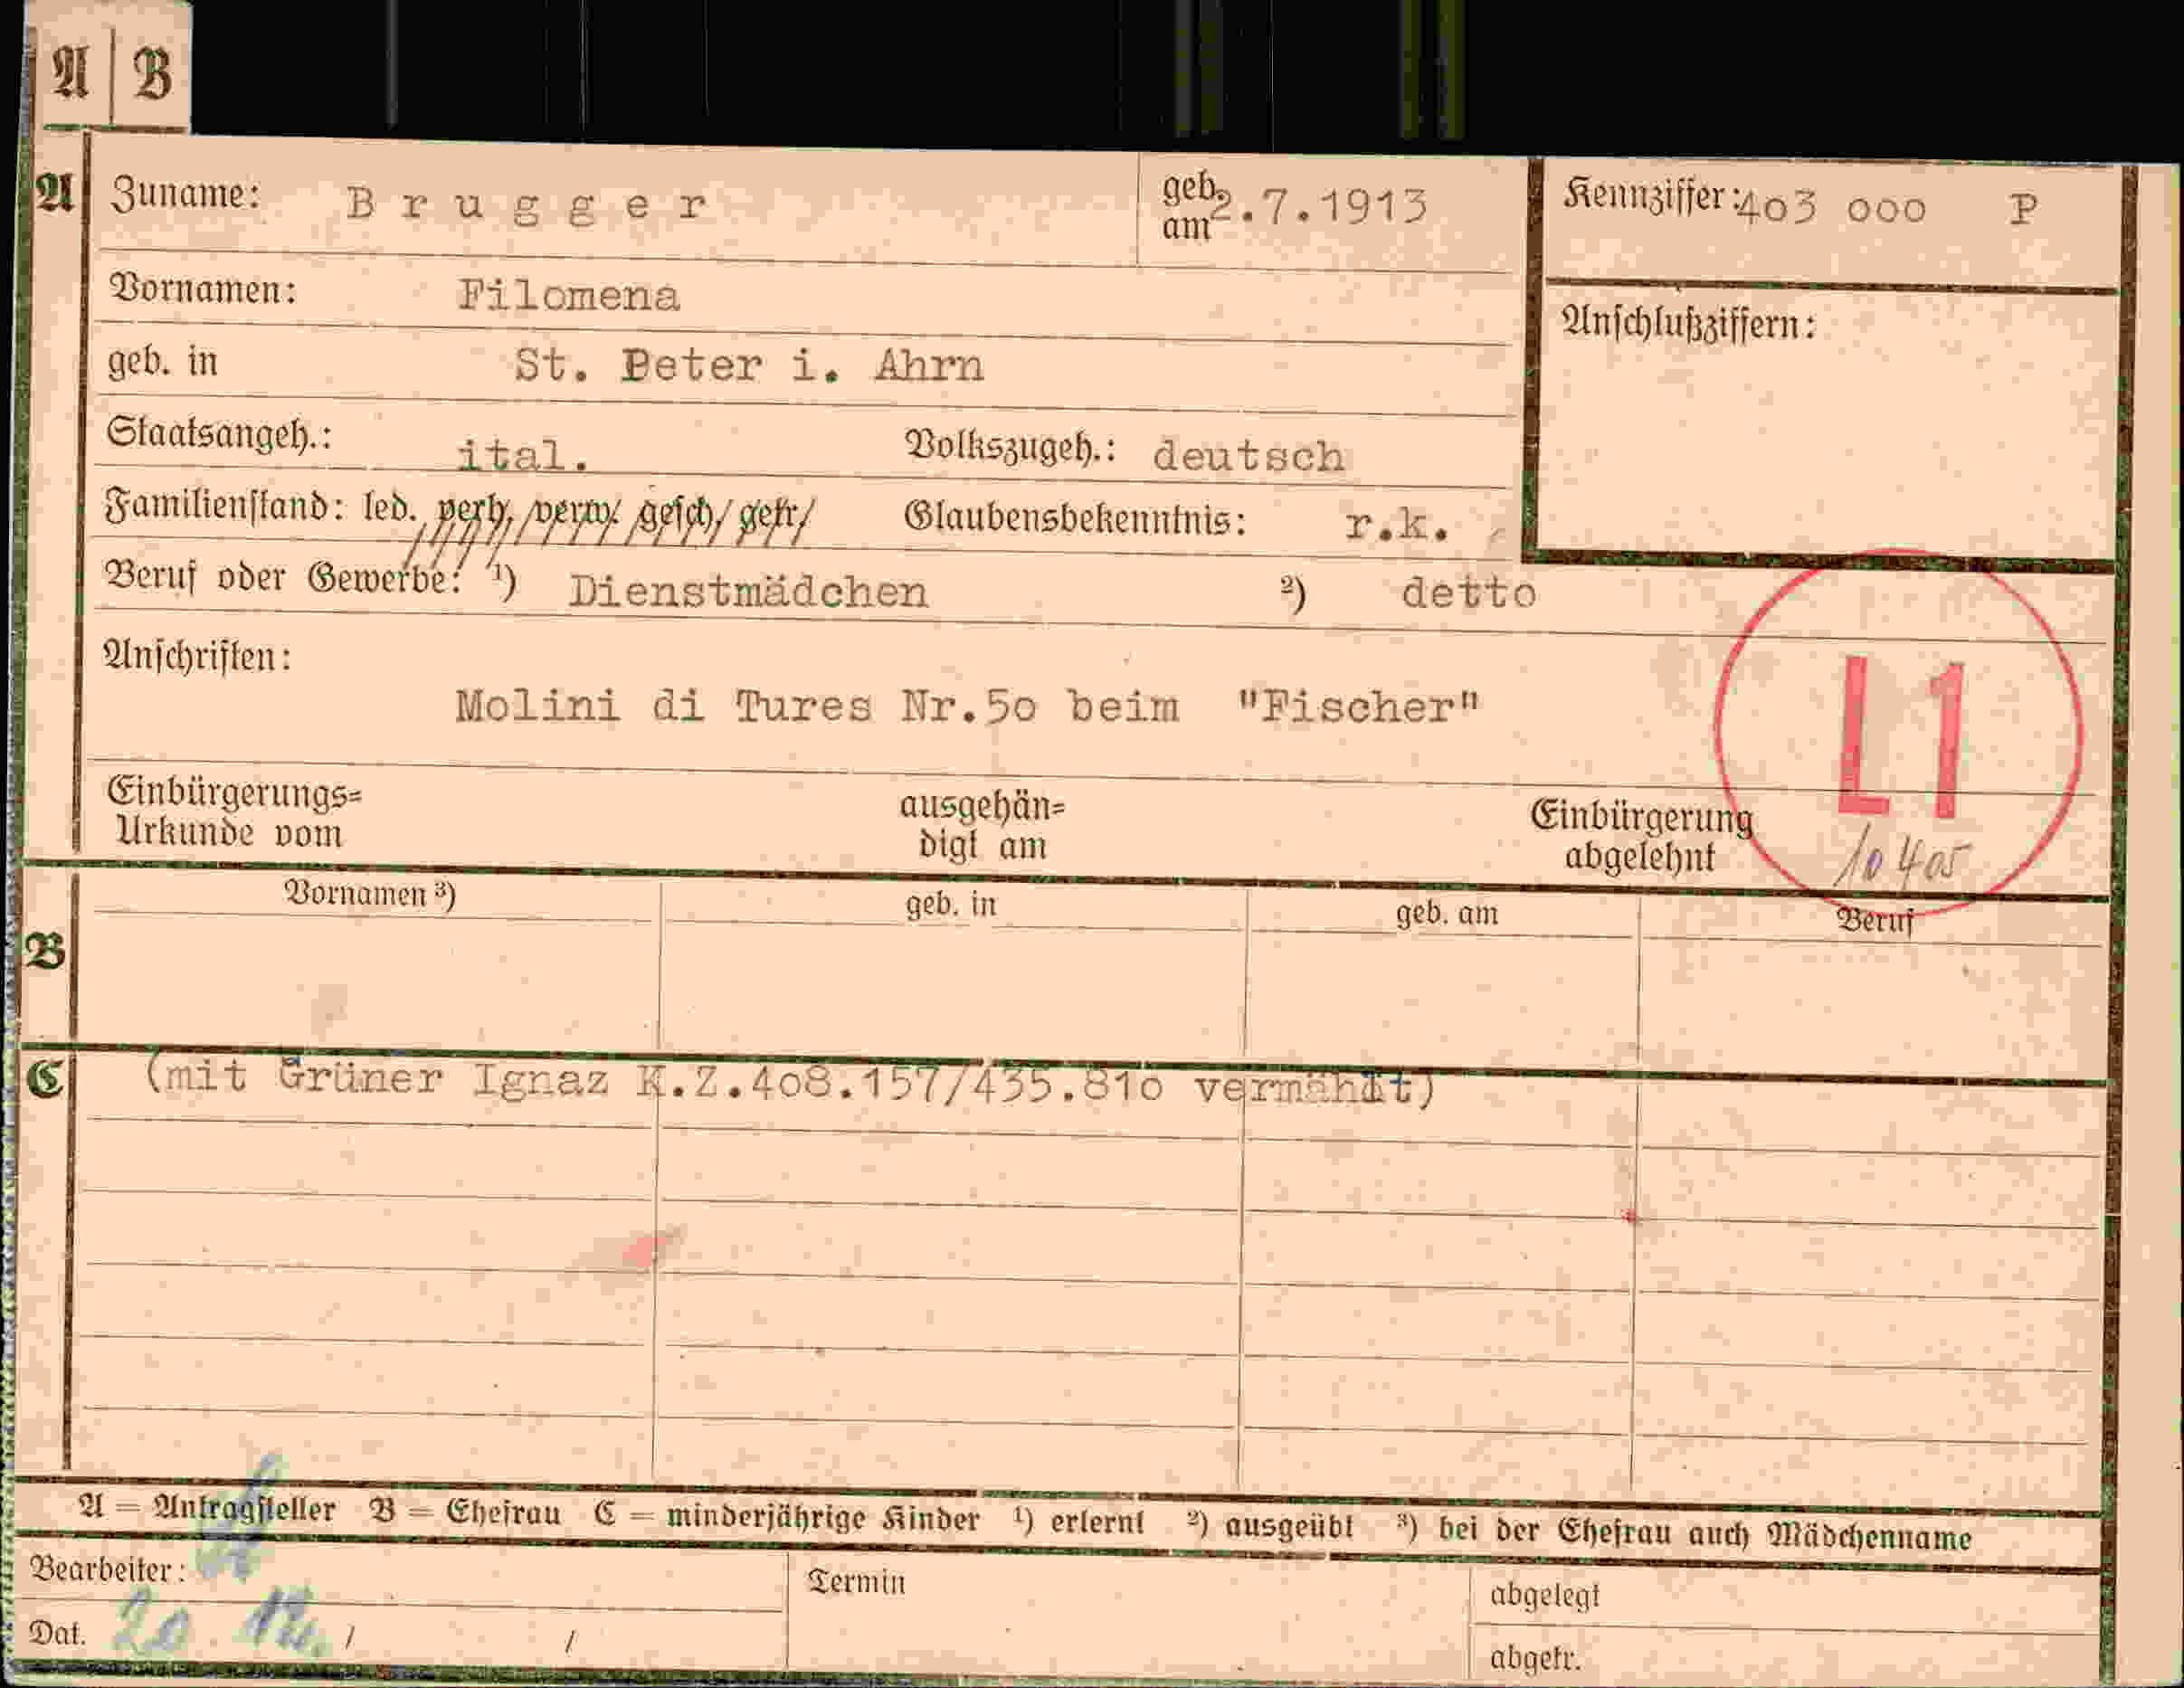 A | B
A Zuname: Brugger geb. am 2.7.1913 Kennziffer: 403 000 P
Vornamen: Filomena
Anschlußziffern:
geb. in St. Peter i. Ahrn
Staatsangeh.: ital. Volkszugeh.: deutsch
Familienstand: led. verh. verw. gesch. getr. Glaubensbekenntnis: r.k.
Beruf oder Gewerbe: ¹) Dienstmädchen ²) detto
Anschriften:
Molini di Tures Nr.50 beim "Fischer"
L1
Einbürgerungs=
Urkunde vom
ausgehän=
digt am
Einbürgerung
abgelehnt
10405
B Vornamen ³) geb. in geb. am Beruf
C (mit Grüner Ignaz K.Z.408.157/435.810 vermählt)
A = Antragsteller B = Ehefrau C = minderjährige Kinder ¹) erlernt ²) ausgeübt ³) bei der Ehefrau auch Mädchenname
Bearbeiter: Termin abgelegt
Dat. 20. / / abgetr.